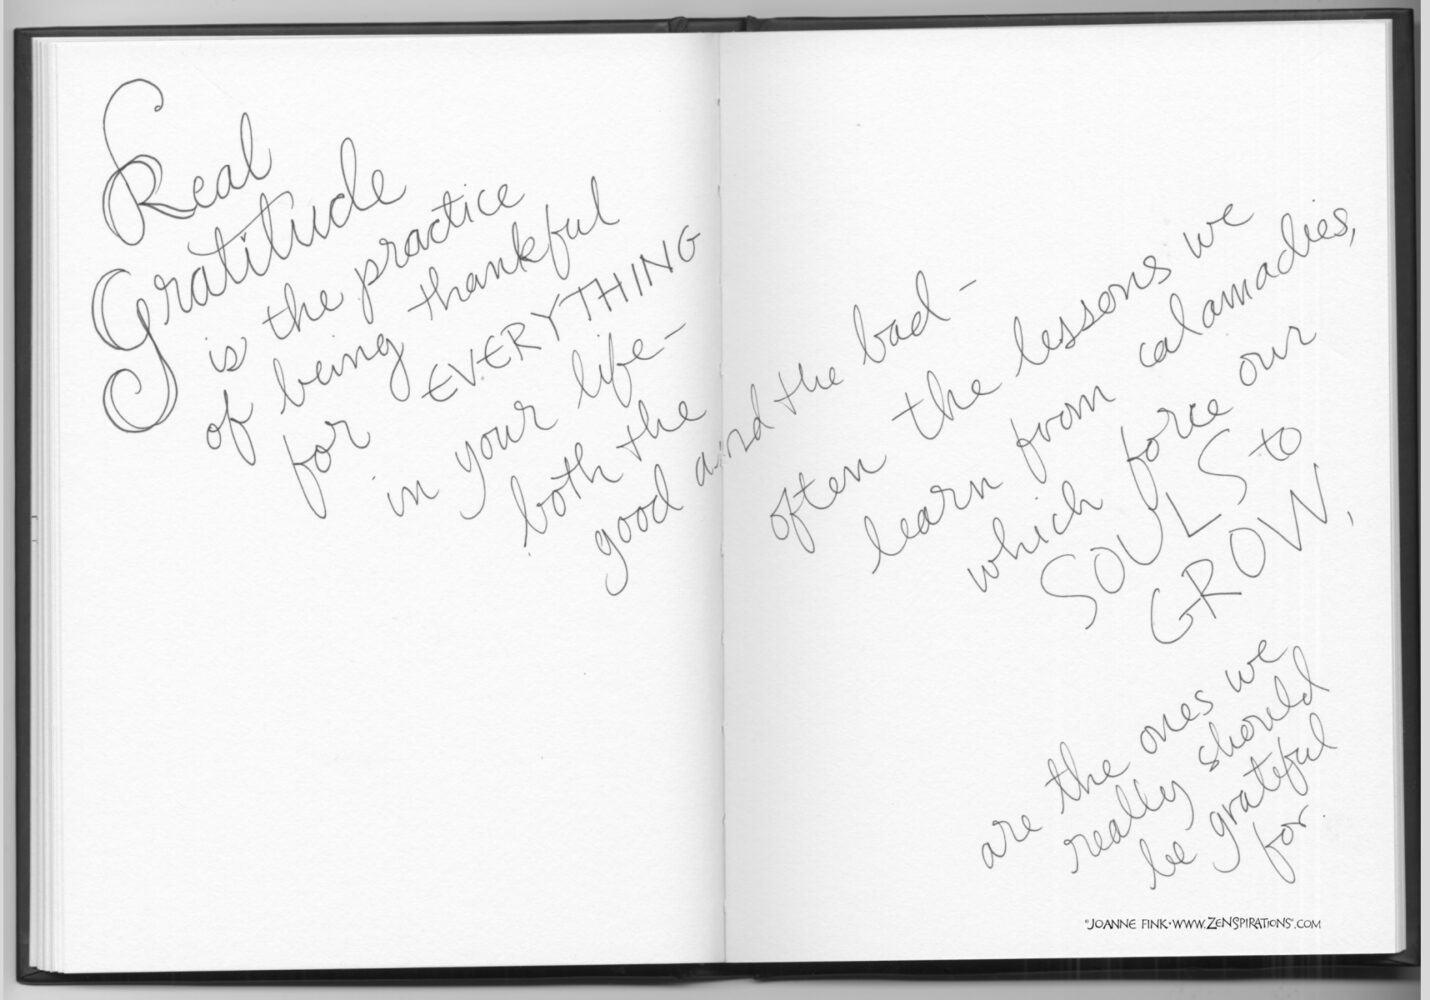 Real
Gratitude
is the practice
of being thankful
for EVERYTHING
in your life-
both the
good and the bad-
often the lessons we
learn from calamadies,
which force our
SOULS to
GROW,
are the ones we
really should
be grateful
for.
©JOANNE FINK·WWW.ZENSPIRATIONS®.COM